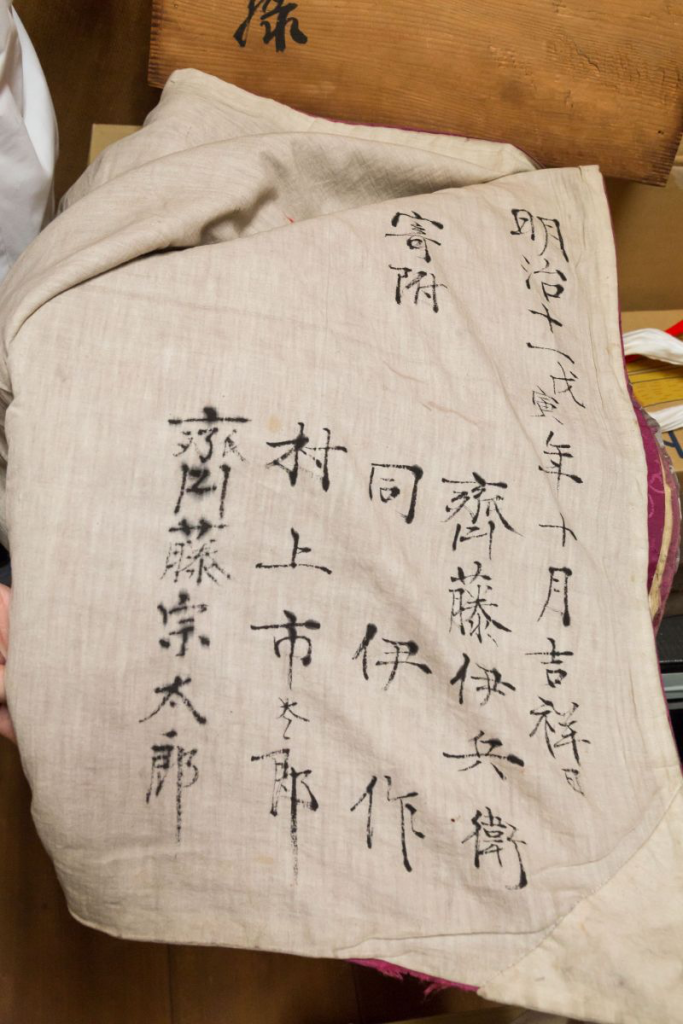 明治十一戊寅年十月吉祥日
寄附
齊藤伊兵衛
同伊作
村上市太郎
齊藤宗太郎